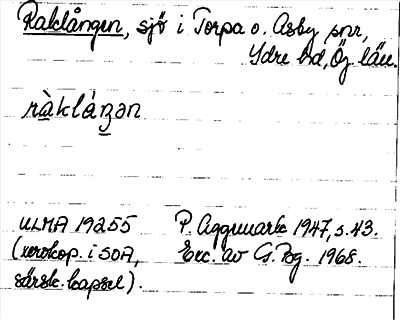 Raklången, sjö i Torpa o. Asby snr,
Ydre hd, Ög län.
ràkláŋən
ULMA 19255 P. Aggmark 1947, s. 43.
(xerokop. i SOA, Exc. av G. Bg. 1968.
särsk. kapsel).